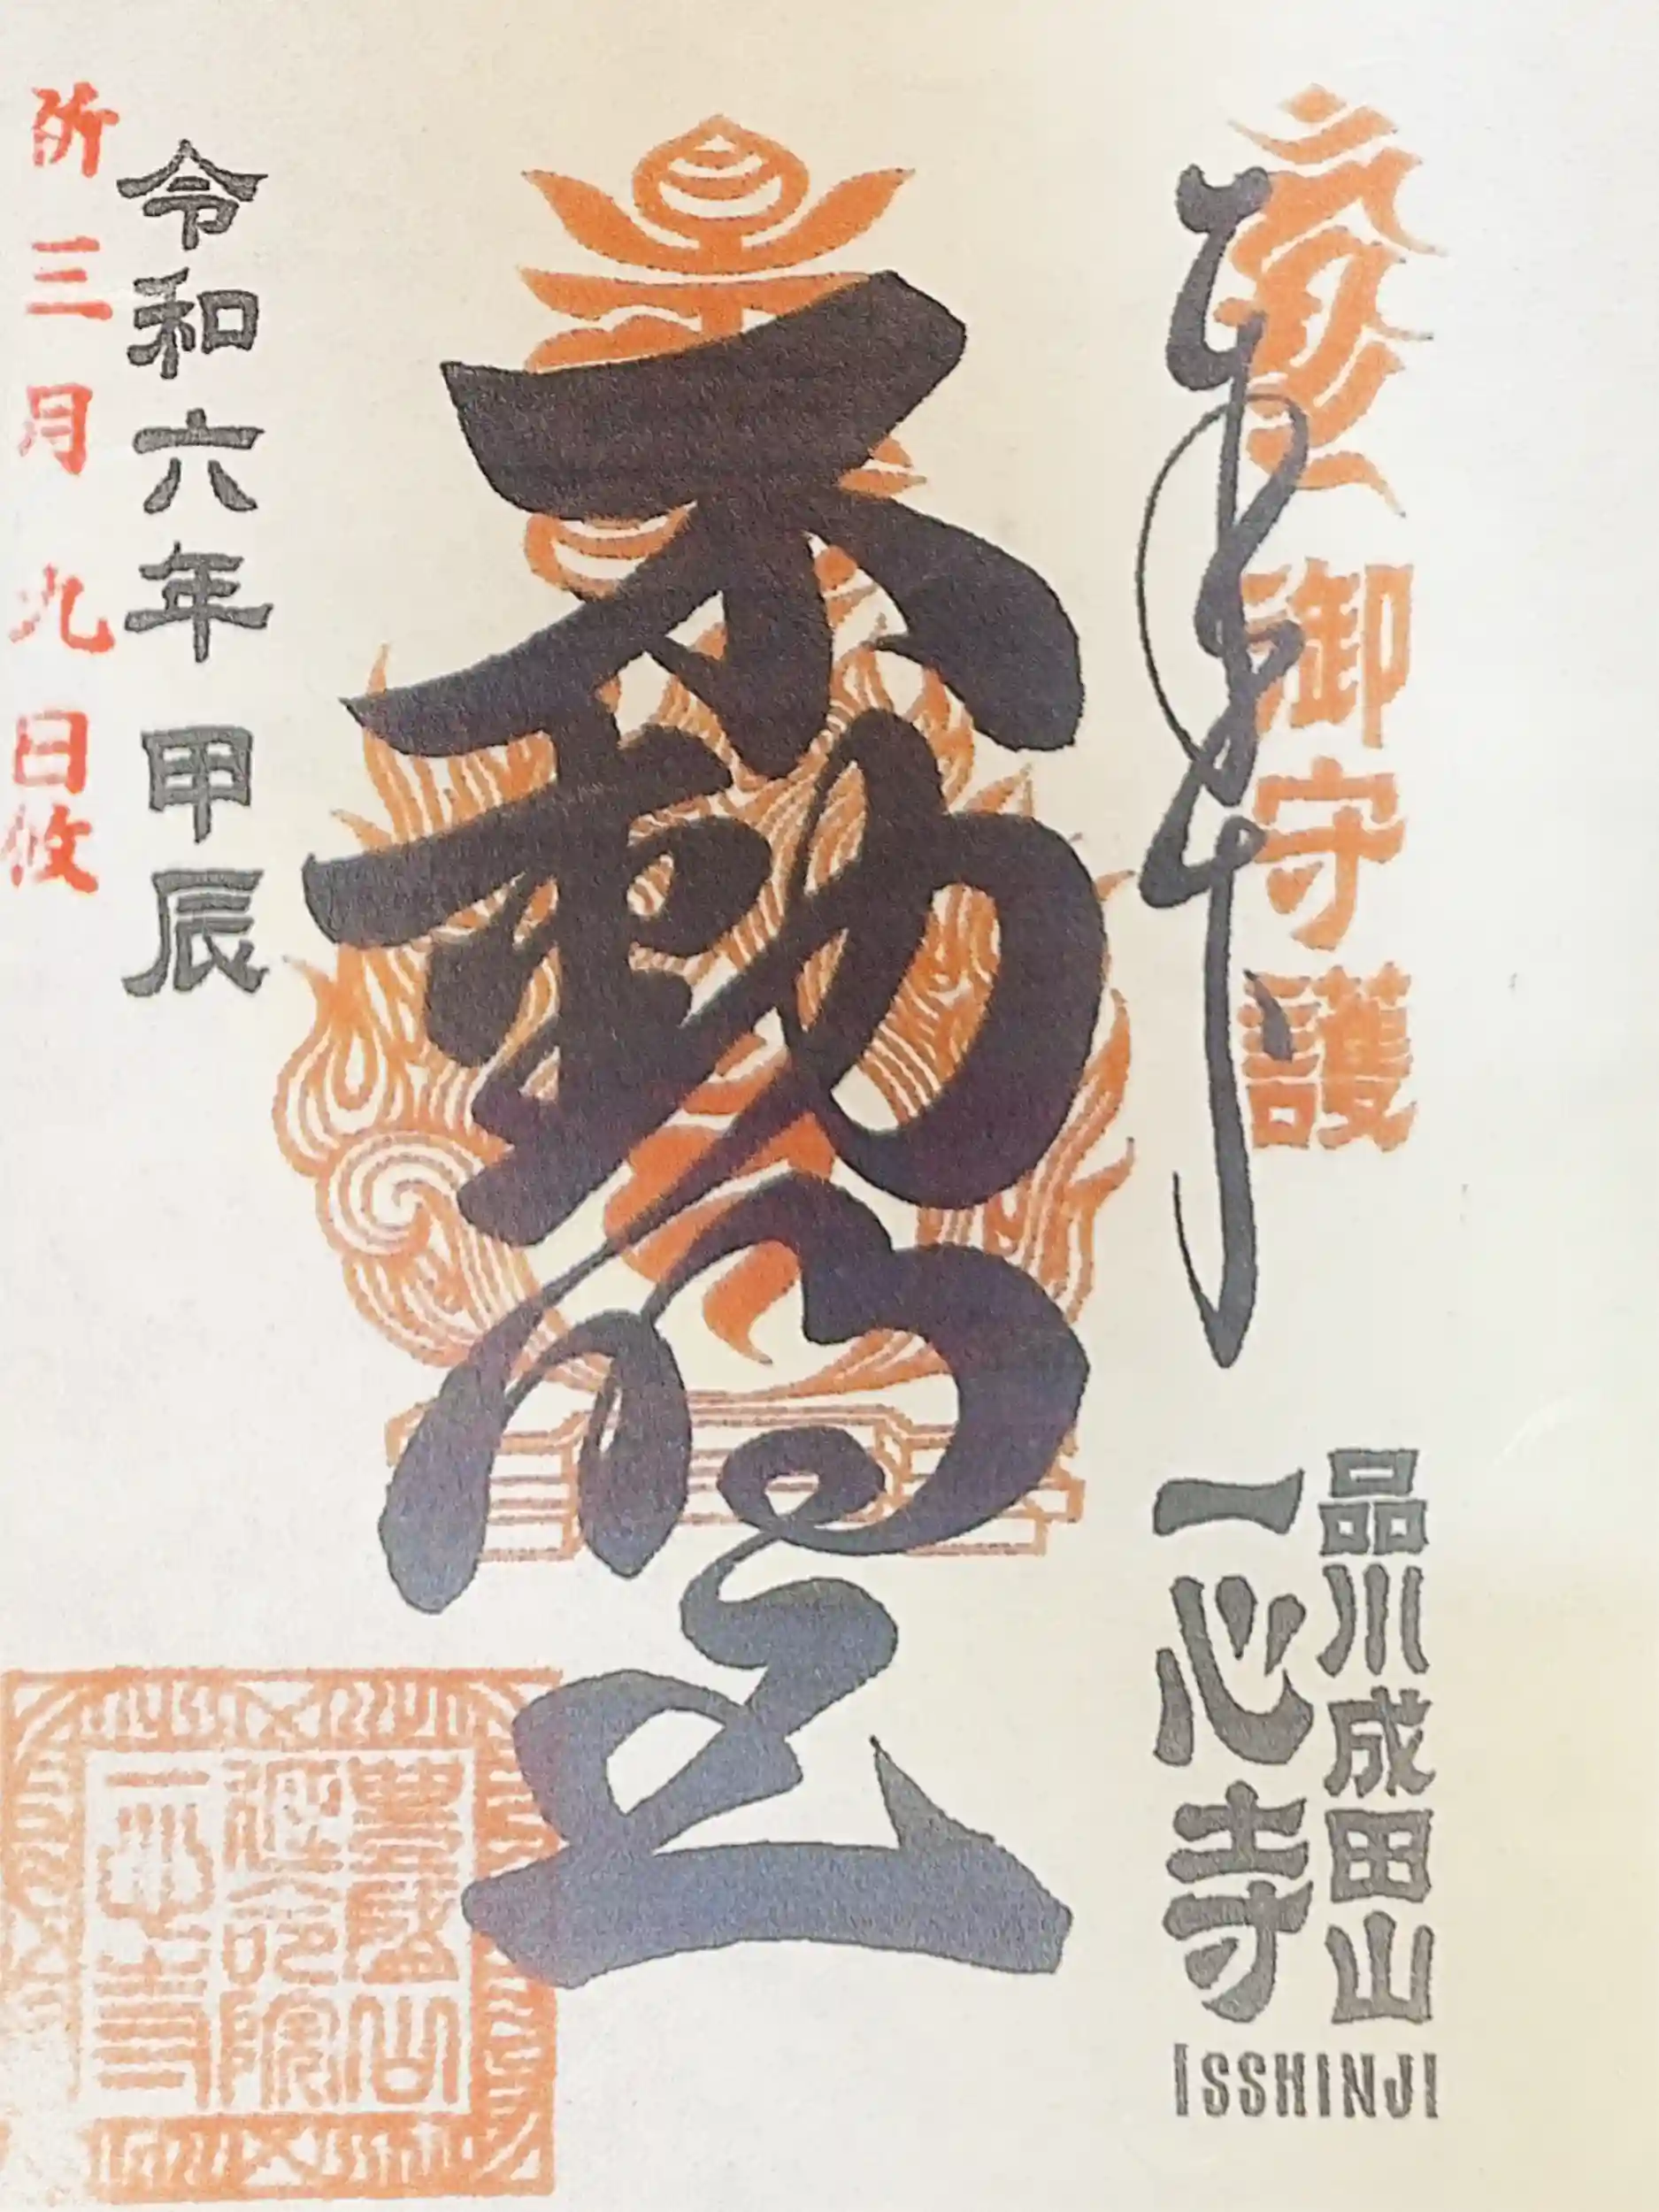 御守護
品川成田山
一心寺
ISSHINJI
不動明王
令和六年 甲辰
三月九日
豊盛山
延命院
一心寺